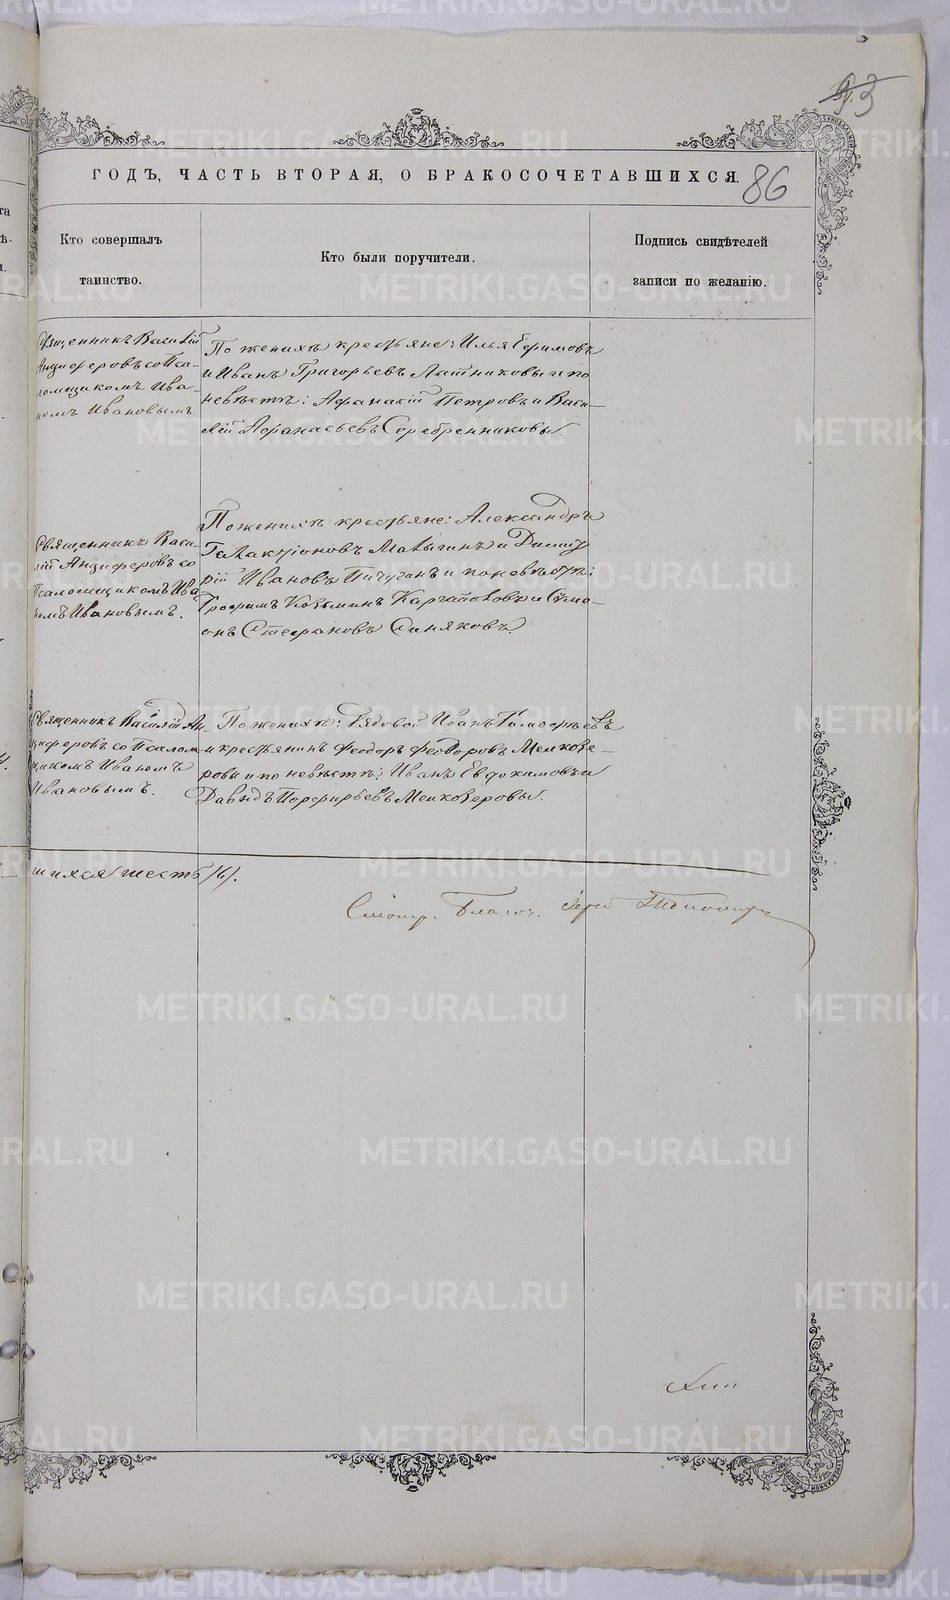 93
ГОДЪ, ЧАСТЬ ВТОРАЯ, О БРАКОСОЧЕТАВШИХСЯ.
86
Кто совершалъ
таинство.
Кто были поручители.
Подпись свидѣтелей
записи по желанію.
Священникъ Василій
Анциферовъ со Пса-
ломщикомъ Ива-
номъ Ивановымъ
По женихѣ крестьяне: Илья Ефимовъ
и Иванъ Григорьевъ Латниковы и по
невѣстѣ: Афанасій Петровъ и Васи-
лій Афанасьевъ Серебренниковы.
Священникъ Васи-
лій Анциферовъ со
Псаломщикомъ Ива
номъ Ивановымъ.
По женихѣ крестьяне: Александръ
Галактіоновъ Малыгинъ и Дмит
рій Ивановъ Пичугинъ и по невѣстѣ:
Трофимъ Козьминъ Каргаполовъ и Симе-
онъ Стефановъ Синяковъ.
Священникъ Василій Ан-
циферовъ со Псалом
щикомъ Иваномъ
Ивановымъ.
По женихѣ: Рядовой Иванъ Тимофѣевъ
и крестьянинъ Феодоръ Феодоровъ Мелкозе-
ровы и по невѣстѣ: Иванъ Евдокимовъ и
Давидъ Порфирьевъ Мелкозеровы.
шихся шесть /6/.
Смотр. Благоч. Іерей
METRIKI.GASO-URAL.RU